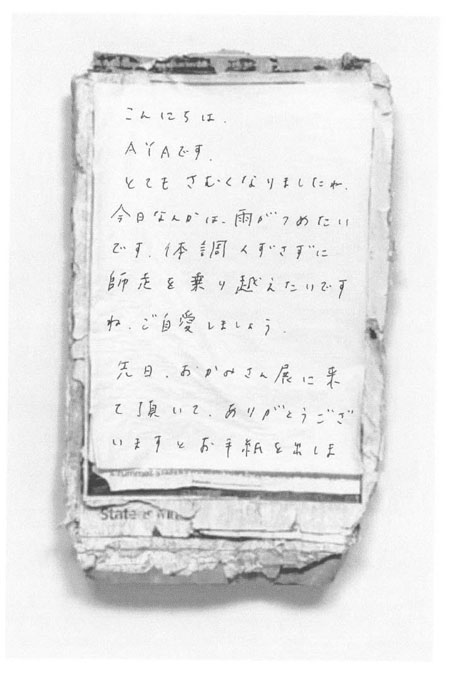 こんにちは.
AYAです.
とても さむくなりましたね.
今日なんかは、雨がつめたい
です. 体調くずさずに
師走を乗り越えたいです
ね. ご自愛しましょう.
先日、おかみさん展に来
て頂いて、ありがとうござ
いますとお手紙を出しま
State